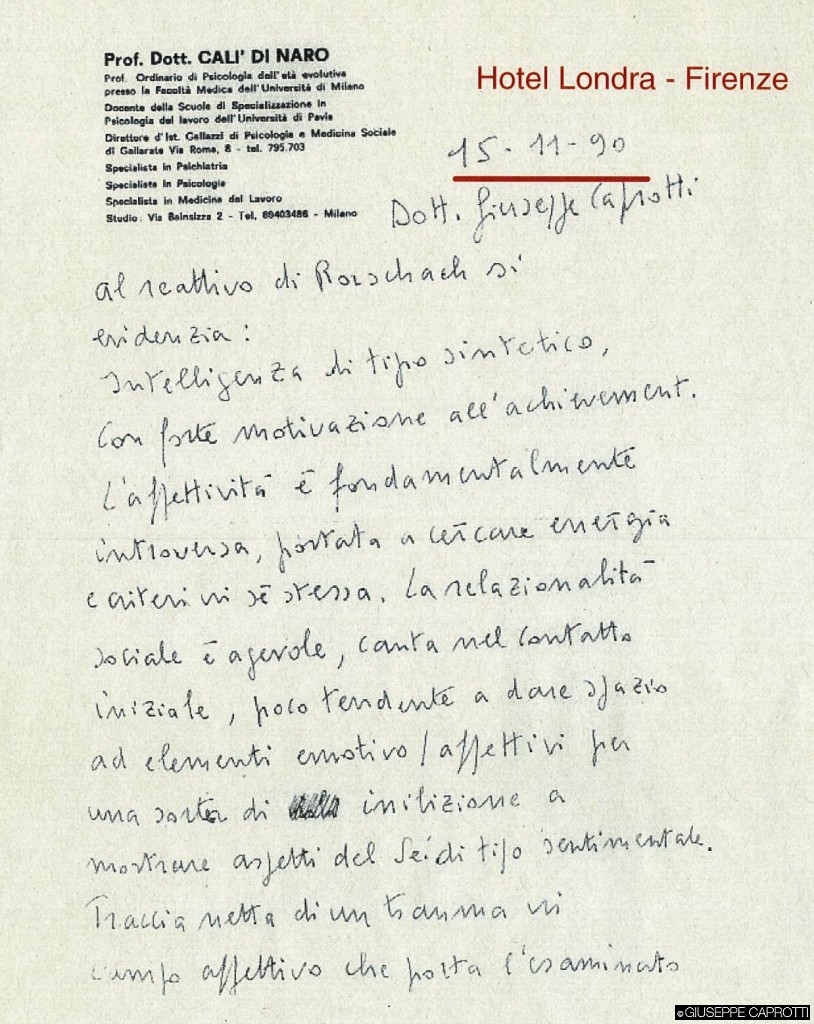 Prof. Dott. CALI' DI NARO
Prof. Ordinario di Psicologia dell'età evolutiva
presso la Facoltà Medica dell'Università di Milano
Docente della Scuola di Specializzazione in
Psicologia del lavoro dell'Università di Pavia
Direttore d'Ist. Gallazzi di Psicologia e Medicina Sociale
di Gallarate Via Roma, 8 - tel. 795.703
Specialista in Psichiatria
Specialista in Psicologia
Specialista in Medicina del Lavoro
Studio: Via Bainsizza 2 - Tel. 89403486 - Milano
Hotel Londra - Firenze
15-11-90
Dott. Giuseppe Caprotti
al reattivo di Rorschach si
evidenzia:
Intelligenza di tipo sintetico,
con forte motivazione all'achievement.
L'affettività è fondamentalmente
introversa, portata a cercare energia
e criteri in sè stessa. La relazionalità
sociale è agevole, cauta nel contatto
iniziale, poco tendente a dare spazio
ad elementi emotivo/affettivi per
una sorta di inibizione a
mostrare aspetti del Sé di tipo sentimentale.
Traccia netta di un trauma in
campo affettivo che porta l'esaminato
©GIUSEPPE CAPROTTI